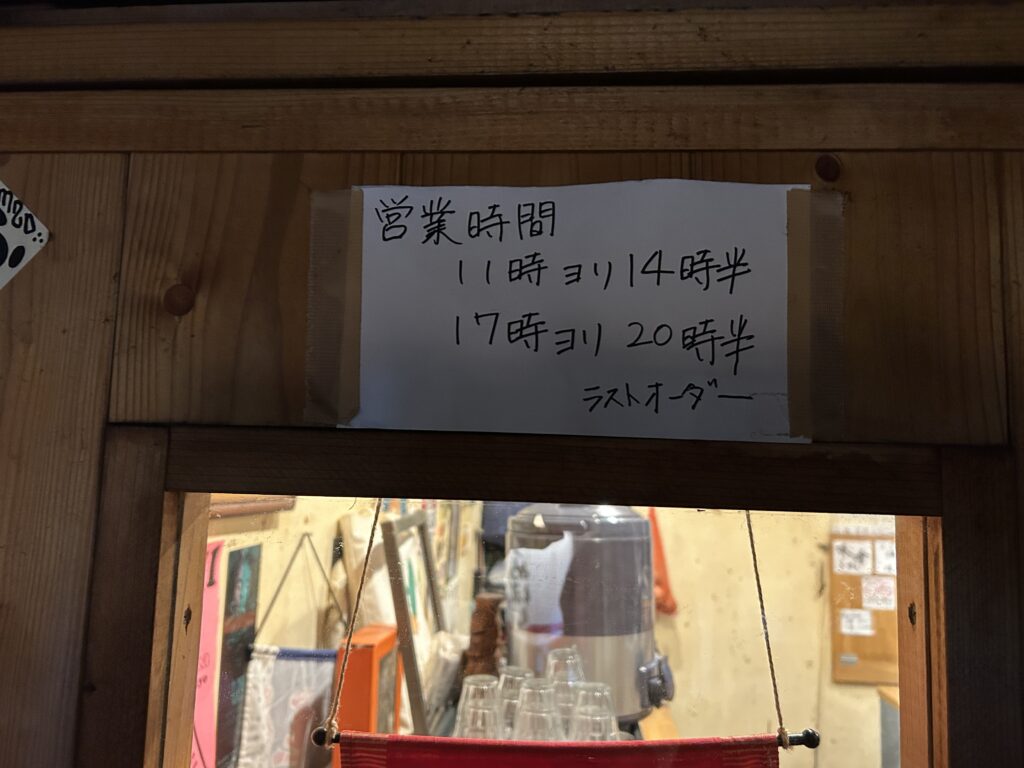 営業時間
11時ヨリ14時半
17時ヨリ20時半
ラストオーダー